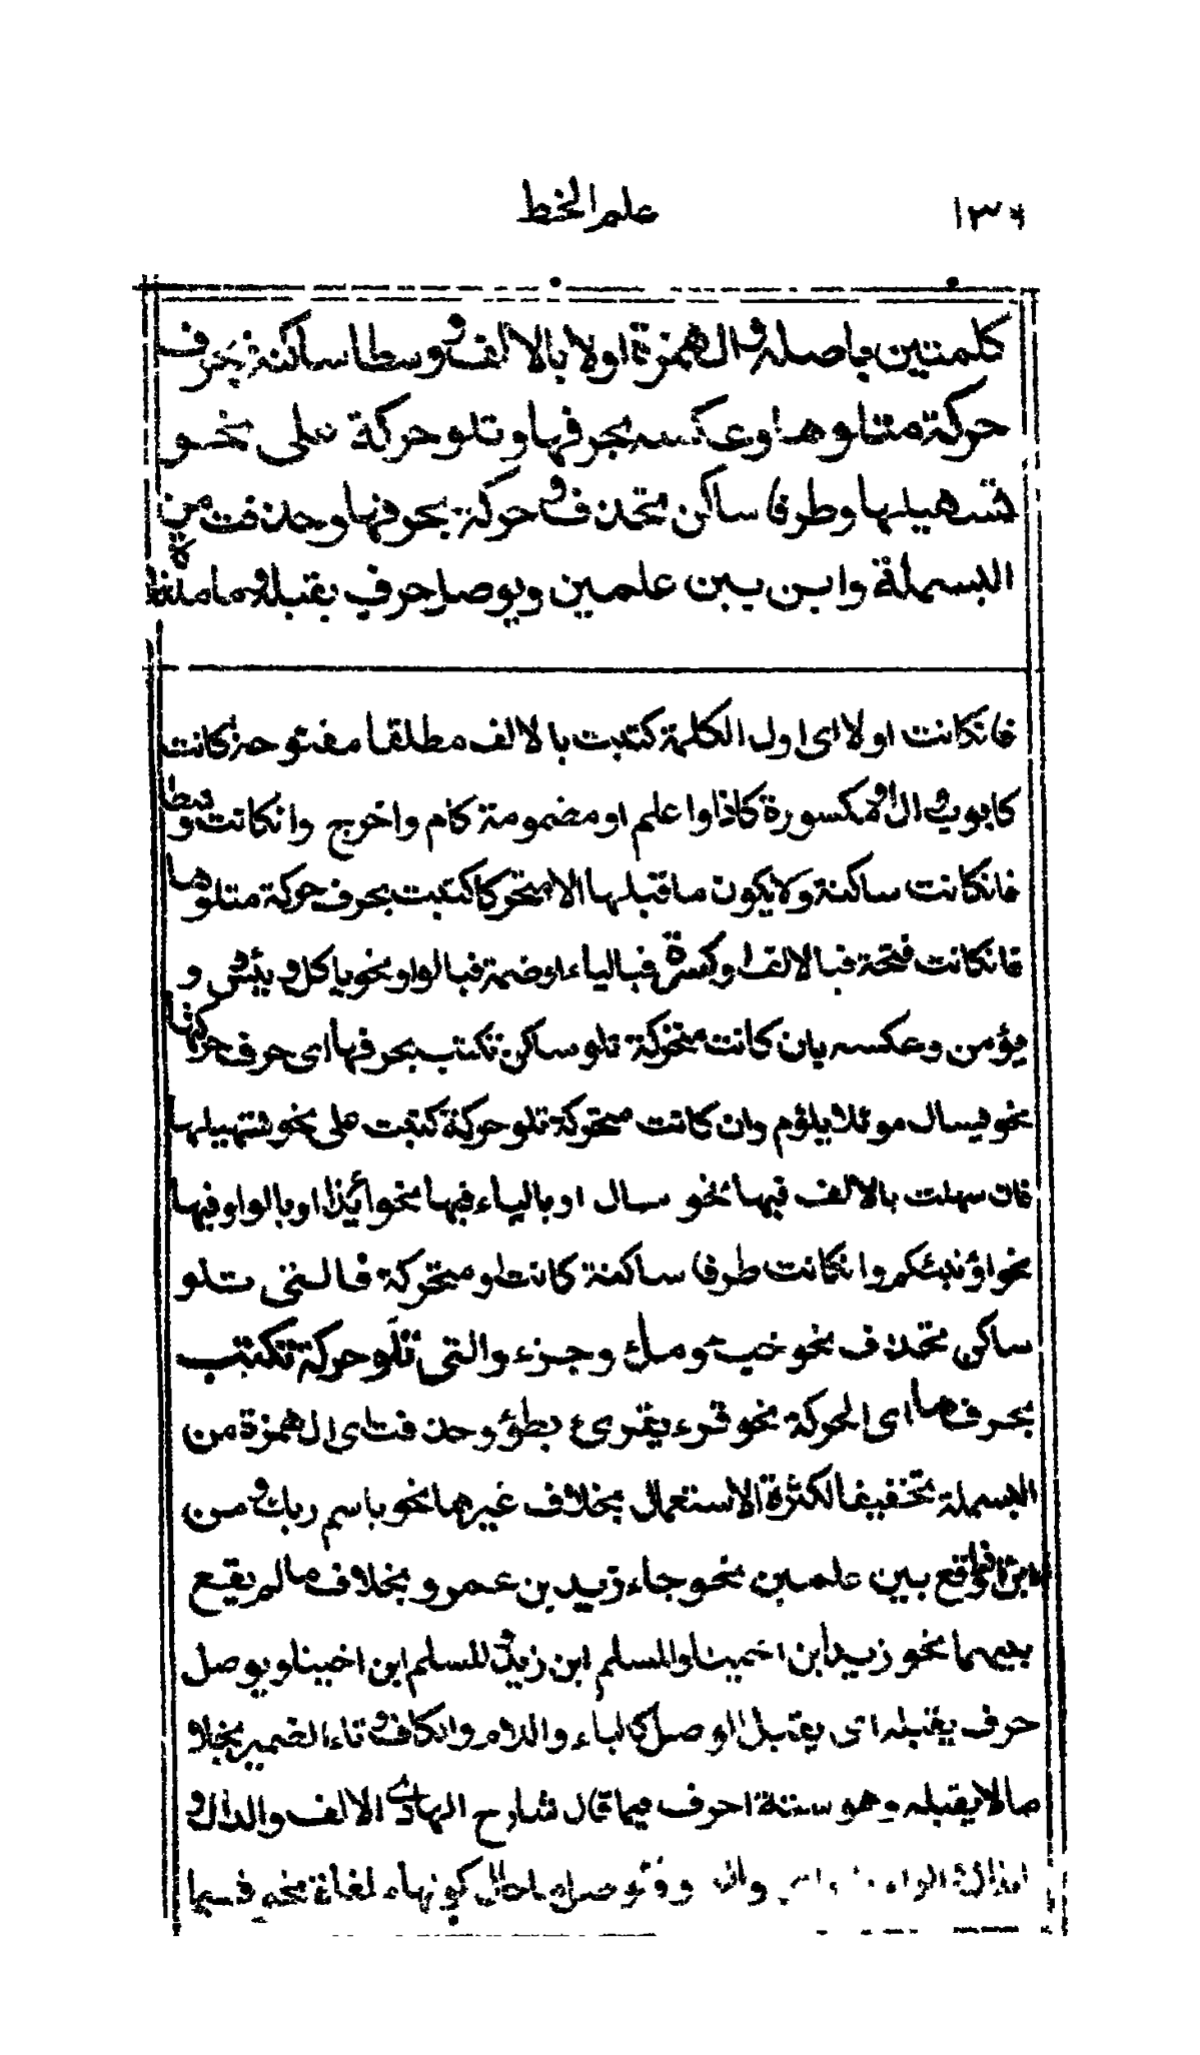 ١٣٤ علم الخط
كلمتين باصله و الهمزة اولا بالالف و وسطا ساكنة بحرف
حركة متلوها وعكسه بحرفها وتلو حركة على نحو
تسهيلها وطرفا ساكن تحذف و حركة بحرفها وحذفت من
البسملة وابن بين علمين ويوصل حرف يقبله و ما ملغاة
فانكانت اولا اى اول الكلمة كتبت بالالف مطلقا مفتوحة كانت
كايوب و ال او مكسورة كاذا واعلم او مضمومة كام واخرج وانكانت وسطا
فانكانت ساكنة ولا يكون ما قبلها الا متحركا كتبت بحرف حركة متلوها
فانكانت فتحة فبالالف او كسرة فبالياء او ضمة فبالواو نحو ياكل و يئس و
يؤمن وعكسه بان كانت متحركة تلو ساكن تكتب بحرفها اى حرف حركتها
نحو يسال موئلا يلؤم وان كانت متحركة تلو حركة كتبت على نحو تسهيلها
فان سهلت بالالف فبها نحو سال او بالياء فبها نحو ائذا او بالواو فبها
نحو اؤنبئكم وانكانت طرفا ساكنة كانت او متحركة فالتى تلو
ساكن تحذف نحو خبء و ملء وجزء والتى تلو حركة تكتب
بحرفها اى الحركة نحو قرء يقرئ بطؤ وحذفت اى الهمزة من
البسملة تخفيفا لكثرة الاستعمال بخلاف غيرها نحو باسم ربك و من
ابن الواقع بين علمين نحو جاء زيد بن عمرو بخلاف ما لم يقع
بينهما نحو زيد ابن اخينا والمسلم ابن زيد و المسلم ابن اخينا ويوصل
حرف يقبله اى يقبل الوصل كالباء واللام والكاف و تاء الضمير بخلاف
ما لا يقبله وهو ستة احرف فيما قال شارح الهادى الالف والدال و
الذال و الراء والواو وتوصل ما حال كونها ملغاة نحو فبما